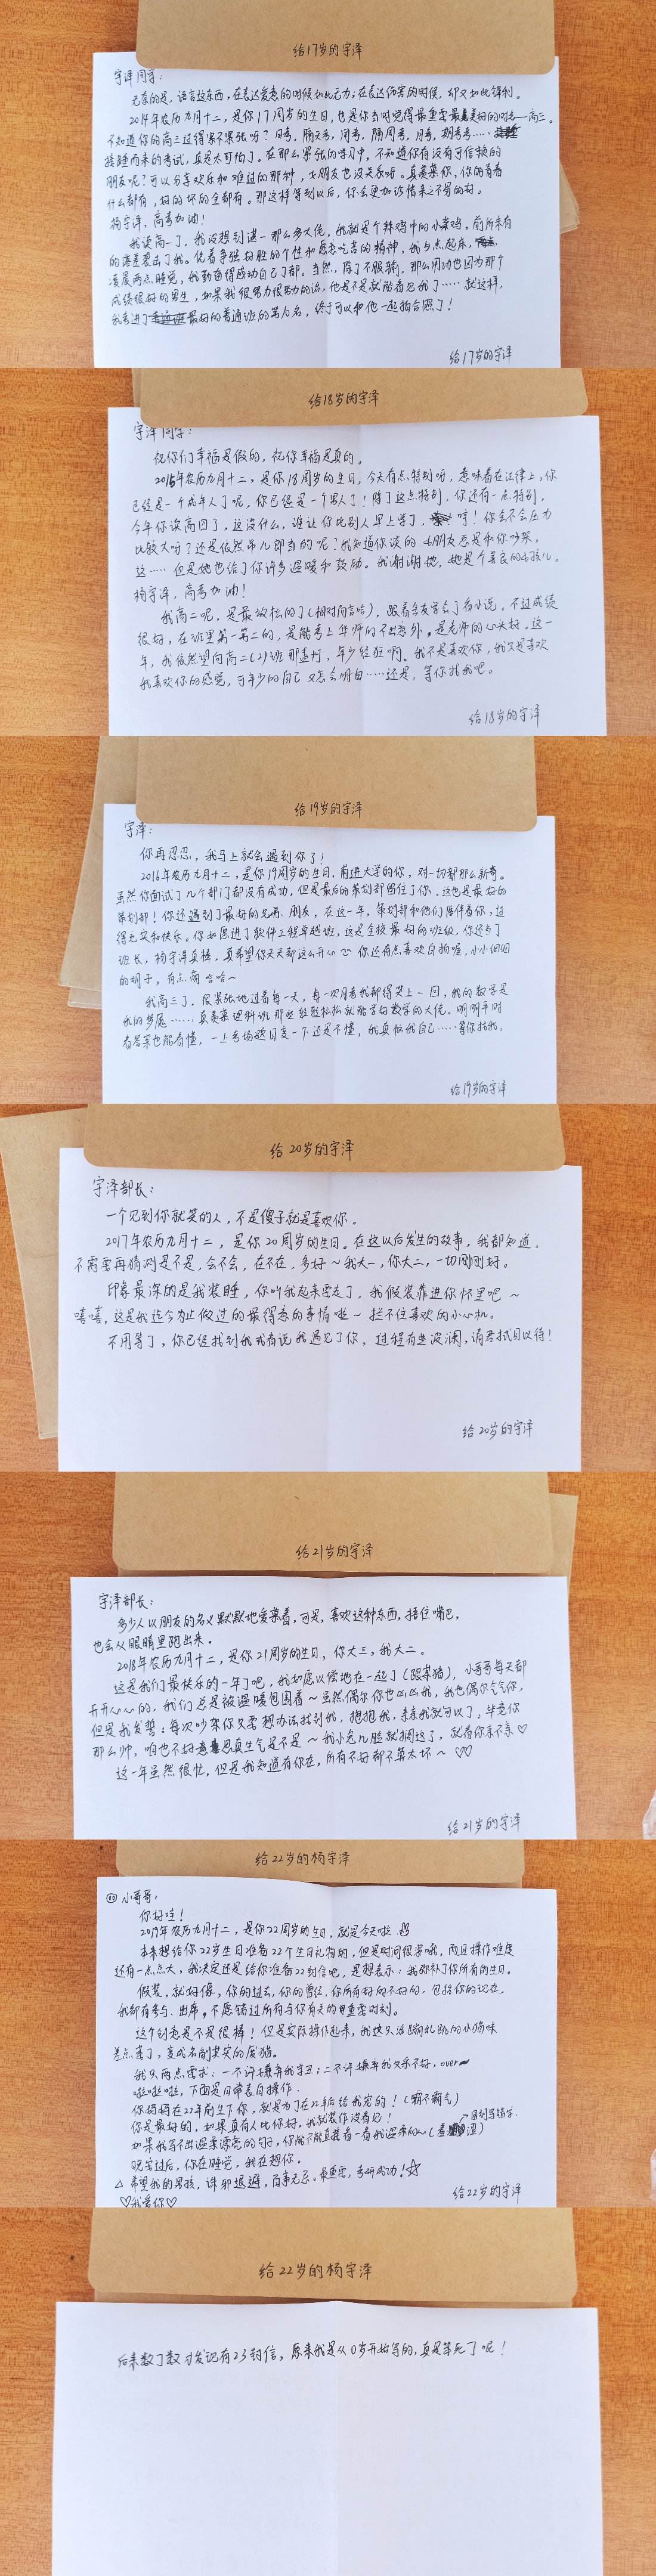 给17岁的宇泽
宇泽同学：
无奈的是，语言这东西，在表达爱意的时候如此无力；在表达伤害的时候，却又如此锋利。
2014年农历九月十二，是你17周岁的生日，也是你当时觉得最重要最美好的时光——高三。
不知道你的高三过得紧不紧张呀？日考，隔天考，周考，隔周考，月考，期考考……
接踵而来的考试，真是太可怕了。在那么紧张的学习中，不知道你有没有可信赖的
朋友呢？可以分享欢乐和难过的那种，女朋友也没关系呀。真羡慕你，你的青春
什么都有，好的坏的全都有。那这样等到以后，你会更加珍惜来之不易的好。
杨宇泽，高考加油！
我读高一了，我没想到遇一那么多大佬，我就是个辣鸡中的小辣鸡，前所未有
的落差袭击了我。凭着争强好胜的个性和愿意吃苦的精神，我五点起床，
凌晨两点睡觉，我勤奋得感动自己了都。当然，除了不服输，那么用功也因为那个
成绩很好的男生，如果我很努力很努力的话，他是不是就能看见我了……就这样，
我考进了最好的普通班的第八名，终于可以和他一起拍合照了！
给17岁的宇泽
给18岁的宇泽
宇泽同学：
祝你们幸福是假的，祝你幸福是真的。
2015年农历九月十二，是你18周岁的生日，今天有点特别呀，意味着在法律上，你
已经是一个成年人了呢，你已经是一个男人了！除了这点特别，你还有一点特别，
今年你读高四了，这没什么，谁让你比别人早上学了，哼！你会不会压力
比较大呀？还是依然吊儿郎当的呢？我知道你谈的女朋友总是和你吵架，
这……但是她也给了你许多温暖和鼓励。我谢谢她，她是个善良的女孩儿。
杨宇泽，高考加油！
我高二呢，是最放松的了（相对而言哈），跟着舍友学会了看小说，不过成绩
很好，在班里第一第二的，是能考上华师的不出意外，是老师的心头好。这一
年，我依然望向高二（2）班那盏灯，年少轻狂啊。我不是喜欢你，我只是喜欢
我喜欢你的感觉，可年少的自己又怎会明白……还是，等你找我吧。
给18岁的宇泽
给19岁的宇泽
宇泽：
你再忍忍，我马上就会遇到你了！
2016年农历九月十二，是你19周岁的生日，甫进大学的你，对一切都那么新奇。
虽然你面试了几个部门都没有成功，但是最后的策划部留住了你，这也是最好的
策划部！你还遇到了最好的兄弟、朋友，在这一年，策划部和他们陪伴着你，过
得充实和快乐。你如愿进了软件工程卓越班，这是全校最好的班级，你还当了
班长，杨宇泽真棒，真希望你天天都这么开心 你还有点喜欢自拍喔，小小细细
的胡子，有点萌哈哈～
我高三了，很紧张地过着每一天，每一次月考我都得哭上一回，我的数学是
我的梦魇……真羡慕理科班那些轻轻松松就能学好数学的大佬。明明平时
看答案也能看懂，一上考场题目变一下还是不懂，我真恨我自己……等你找我。
给19岁的宇泽
给20岁的宇泽
宇泽部长：
一个见到你就笑的人，不是傻子就是喜欢你。
2017年农历九月十二，是你20周岁的生日。在这以后发生的故事，我都知道，
不需要再猜测是不是，会不会，在不在，多好～我大一，你大二，一切刚刚好。
印象最深的是我装睡，你叫我起来要走了，我假装靠进你怀里吧～
嘻嘻，这是我迄今为止做过的最得意的事情啦～拦不住喜欢的小心机。
不用等了，你已经找到我或者说我遇见了你，过程有些波澜，请君拭目以待！
给20岁的宇泽
给21岁的宇泽
宇泽部长：
多少人以朋友的名义默默地爱某着，可是，喜欢这种东西，捂住嘴巴，
也会从眼睛里跑出来。
2018年农历九月十二，是你21周岁的生日，你大三，我大二。
这是我们最快乐的一年了吧，我如愿以偿地在一起了（跟某猪），小哥哥每天都
开开心心的，我们总是被温暖包围着～虽然偶尔你也凶凶我，我也偶尔气气你，
但是我发誓：每次吵架你只要想办法找到我，抱抱我，亲亲我就可以了，毕竟你
那么帅，咱也不好意思真生气是不是～我小兔儿脸就搁这了，就看你亲不亲♡
这一年虽然很忙，但是我知道有你在，所有不好都不算太坏～♡♡
给21岁的宇泽
给22岁的杨宇泽
㉒ 小哥哥：
你好哇！
2019年农历九月十二，是你22周岁的生日，就是今天啦
本来想给你22岁生日准备22个生日礼物的，但是时间很紧哦，而且操作难度
还有一点点大，我决定还是给你准备22封信吧，是想表示：我弥补了你所有的生日。
假装，就好像，你的过去，你的曾经，你所有好的不好的，包括你的现在，
我都有参与、出席，不愿错过所有与你有关的重要时刻。
这个创意是不是很棒！但是实际操作起来，我这只活蹦乱跳的小猫咪
差点蔫了，变成名副其实的废猫。
我只两点要求：一不许嫌弃我字丑；二不许嫌弃我文采不好，over～
啦啦啦，下面是日常表白操作：
你妈妈在22年前生下你，就是为了在22年后给我宠的！（霸不霸气）
你是最好的，如果真有人比你好，我就装作没看见！
如果我写不出温柔漂亮的句子，你能不能直接看一看我温柔的心（羞涩）
→困到写错字.
晚安过后，你在睡觉，我在想你。
△希望我的男孩，诸邪退避，百事无忌。最重要，考研成功！☆
♡我爱你♡
给22岁的宇泽
给22岁的杨宇泽
后来数了数才发现有23封信，原来我是从0岁开始写的，真是笨死了呢！